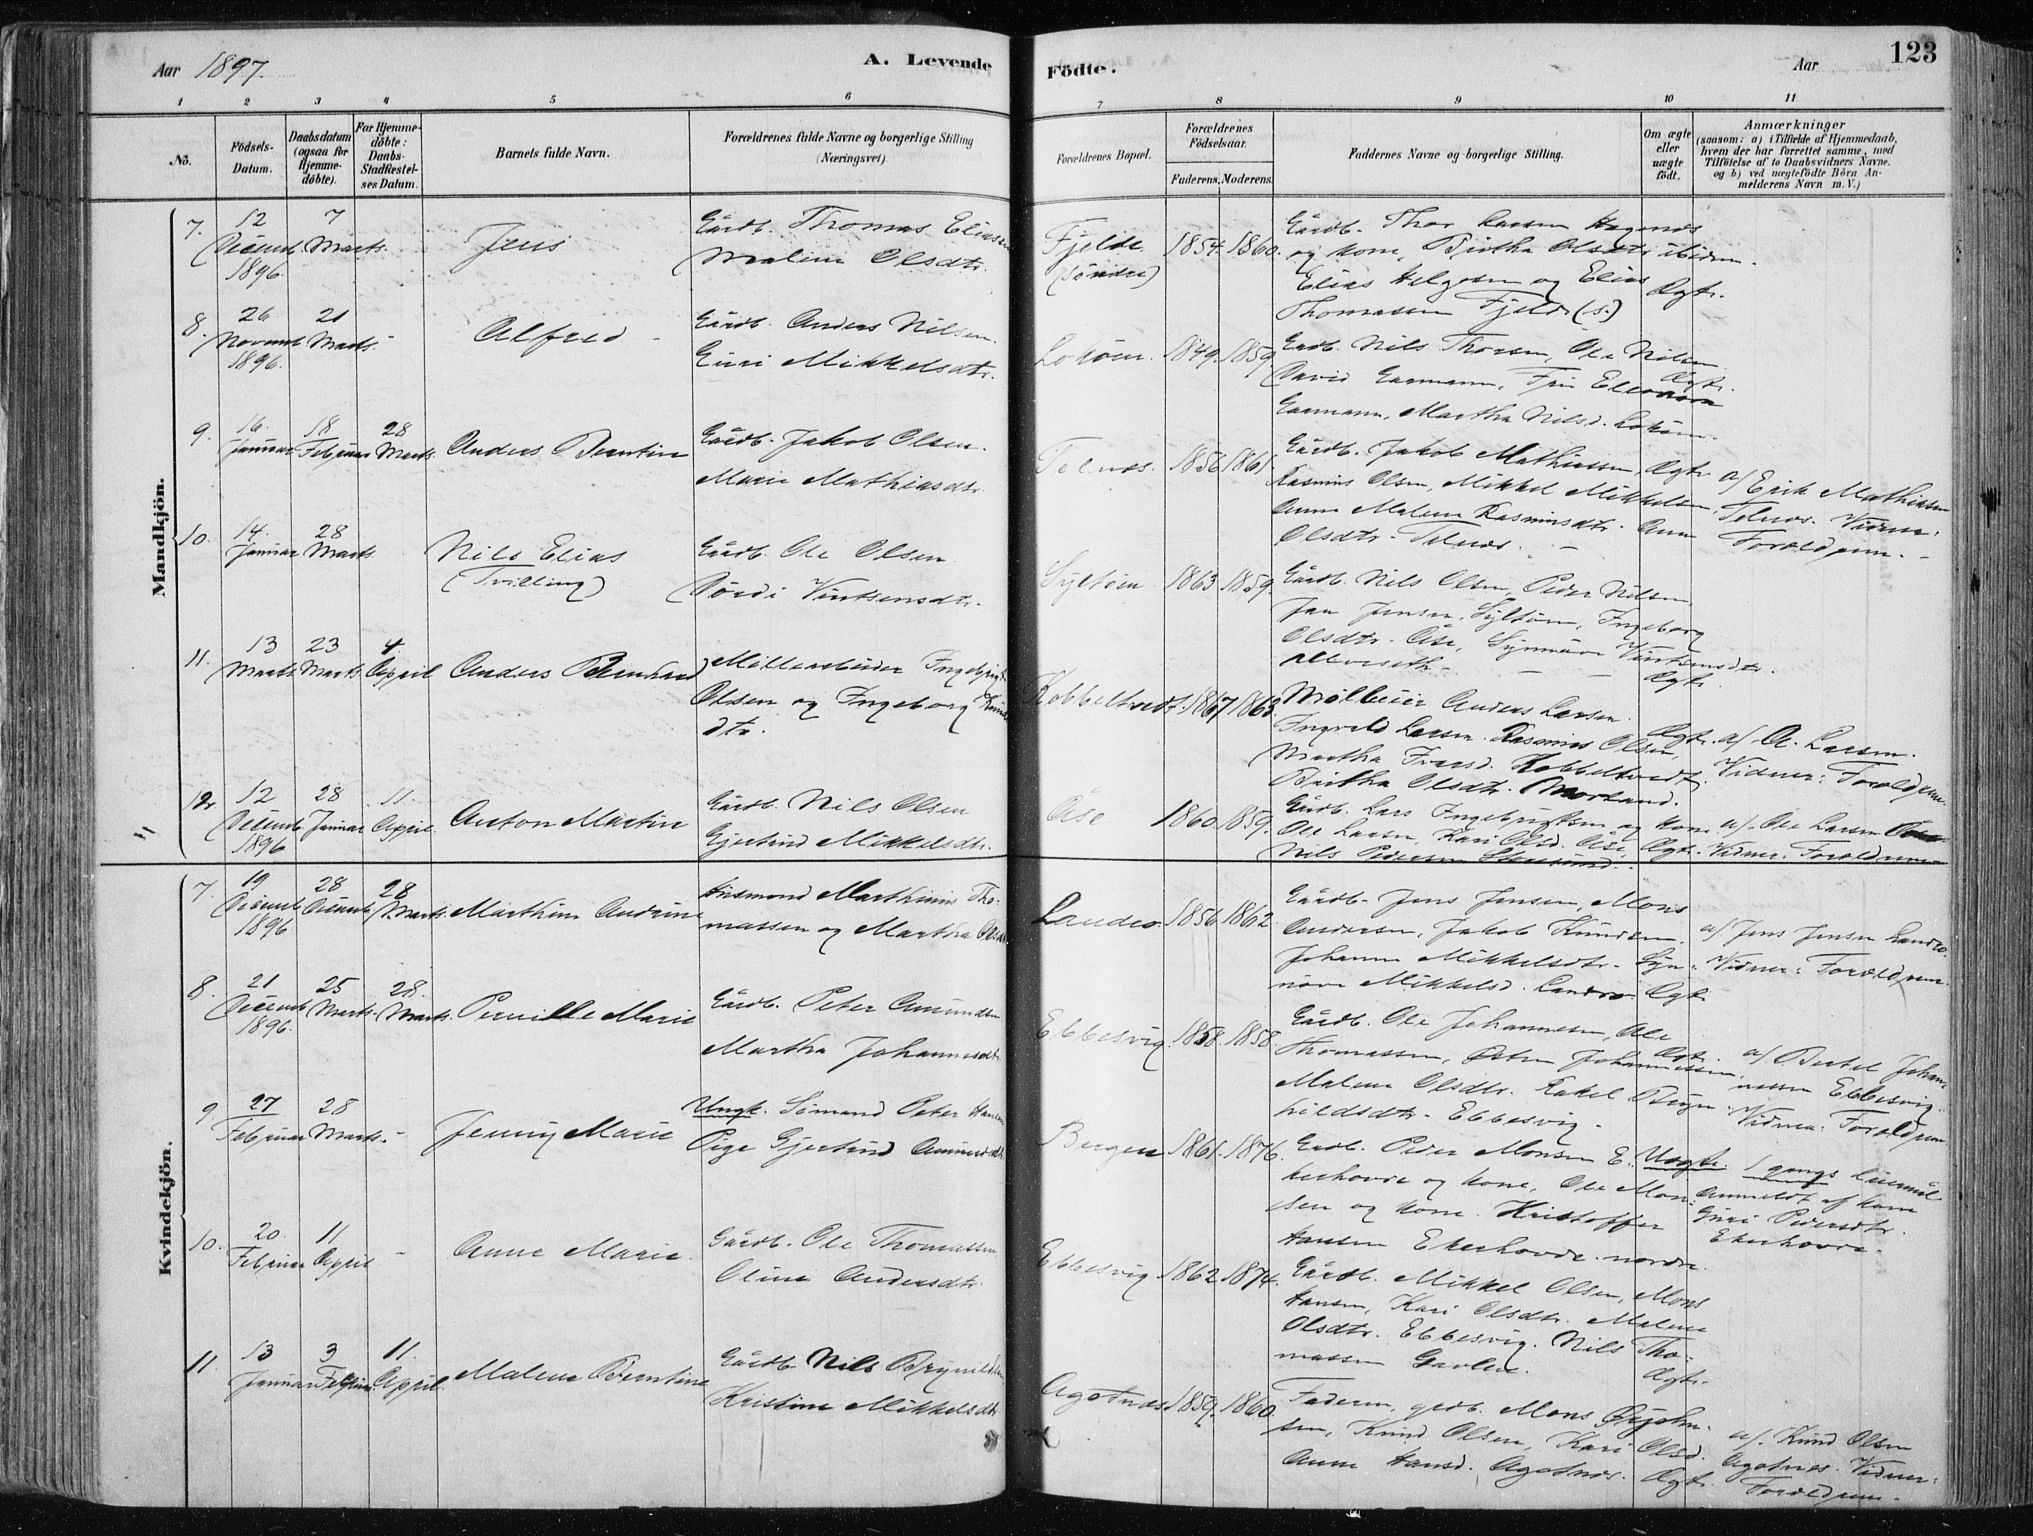 Aar 1897.
A. Levende
Födte.
Aar
123
1 2 3 4 5 6 7 8 9 10 11
No.
Födsels-Datum.
Daabsdatum (ogsaa for Hjemmedöbte).
For Hjemmedöbte: Daabs-Stadfæstelses Datum.
Barnets fulde Navn.
Forældrenes fulde Navne og borgerlige Stilling (Næringsvei).
Forældrenes Bopæl.
Forældrenes Födselsaar.
Faderens. Moderens.
Faddernes Navne og borgerlige Stilling.
Om ægte eller uægte födt.
Anmærkninger
(saasom: a) i Tilfælde af Hjemmedaab,
hvem der har forrettet samme, med
Tilföielse af to Daabsvidners Navne.
og b) ved uægtefödte Börn Anmelderens Navn m. V.)
Mandkjön.
7. 12 Decemb. 1896. 7 Marts. Jens
Gårdb. Thomas Eliasen
Malene Olsdtr.
Fjelde (søndre) 1854. 1860.
Gårdb. Thor Larsen Hagenæs
og kone, Britha Olsdtr ibidem.
Elias Helgesen og Elias Ægte.
Thomassen Fjelde (s.)
8. 26 Novemb. 1896. 21 Marts. Alfred
Gårdb. Anders Nilsen.
Guri Mikkelsdtr.
Lokøen. 1849. 1859.
Grdb. Nils Thorsen, Ole Nilsen
David Garmann, Frk Elleonora Ægte.
Garmann, Martha Nilsd. Lokøen.
9. 16. Januar 18 Februar 28 Marts. Anders Berntine
Gårdb. Jakob Olsen.
Marie Mathiasdtr.
Telnæs. 1856 1861.
Gårdb. Jakob Mathiassen, Ægte
Rasmus Olsen, Mikkel Mikkelsen,
Anna Malene Rasmusdtr. Anna
Olsdtr. Telnæs.
a/ Erik Mathiassen
Telnæs. Vidner:
Forældrene.
10. 14. Januar 28 Marts Nils Elias (Tvilling)
Gårdb. Ole Olsen
Dordi Vintsensdtr.
Syltøen 1863 1859.
Gårdb. Nils Olsen, Peder Nilsen
Jan Jensen, Syltøen, Ingeborg
Olsdtr. Åse, Synnøve Vintsensdtr.
Ægte.
11. 13 Marts. 23 Marts. 4. April Anders Bernhard
Møllearbeider Ingebrigt
Olsen og Ingeborg
dtr.
Kobbeltvedt 1867 1863
Møllbeier Anders Larsen.
Ingvald Larsen. Rasmus Olsen, Ægte.
Martha Iversd. Kobbeltvedt,
Britha Olsdtr. Morland.
a/ A. Larsen.
Vidner: Forældrene.
12. 12 Decemb. 1896 28 Januar 11. April. Anton Martin
Gårdb. Nils Olsen
Gjertrud Mikkelsdtr.
Åse 1860. 1859.
Gårdb. Lars Ingebrigtsen og kone
Ole Larsen, Kari Olsd. Åse, Ægte.
Nils Pedersen
a/. Ole Larsen Åse
Vidner: Forældrene
Kvindekjön.
7. 19 Decemb. 1896. 28 Decemb. 28 Marts. Marthine Andrine
Husmand Marthinus Tho-
massen og Martha Olsdtr
Landro. 1856. 1862
Gårdb. Jens Jensen, Mons
Andersen, Jakob Knudsen.
Johanna Mikkelsdtr. Syn-
nøve Mikkelsd. Landro Ægte.
a/ Jens Jensen Landro.
Vidner: Forældrene.
8. 21 Decemb. 1896. 25 Marts. 28. Marts. Pernille Marie
Gårdb. Peter Amundsen
Martha Johannesdtr.
Ebbesvig. 1858. 1858.
Gårdb. Ole Johannesen, Ole
Thomassen, Østen Johannessen, Ægte.
Malene Olsdtr. Rakel Bryn-
hildsdtr. Ebbesvig.
a/ Bertel Johan-
nessen Ebbesvig.
Vidner: Forældrene
9. 27 Februar 28 Marts. Jenny Marie
Ungk. Sømand Peter Hansen
Pige Gjertrud Amundsdtr.
Bergen 1861. 1876.
Grdb. Peder Monsen E- Uægte.
kerhovde og kone, Ole Mon-
sen og kone. Kristoffer
Hansen Ekerhovde nordre.
1 gangs leiermål
Anmeldt af kone
Guri Pedersdtr.
Ekerhovde.
10. 20. Februar 11 April Anne Marie.
Gårdb. Ole Thomassen.
Oline Andersdtr.
Ebbesvig 1862. 1874.
Gårdb. Mikkel Olsen, Mons
Hansen, Kari Olsdtr. Malene
Olsdtr. Ebbesvig. Nils Tho-
massen Gavlen. Ægte.
11. 13 Januar 3 Februar. 11. April. Malene Berntine
Gårdb. Nils Brynildsen
Kristine Mikkelsdtr
Agotnæs 1859. 1860
Faderen, grdb. Mons
sen, Knud Olsen, Kari Olsd.
Anna Hansd. Agotnæs. Ægte.
a/. Knud Olsen
Agotnæs. Vidner:
Forældrene.